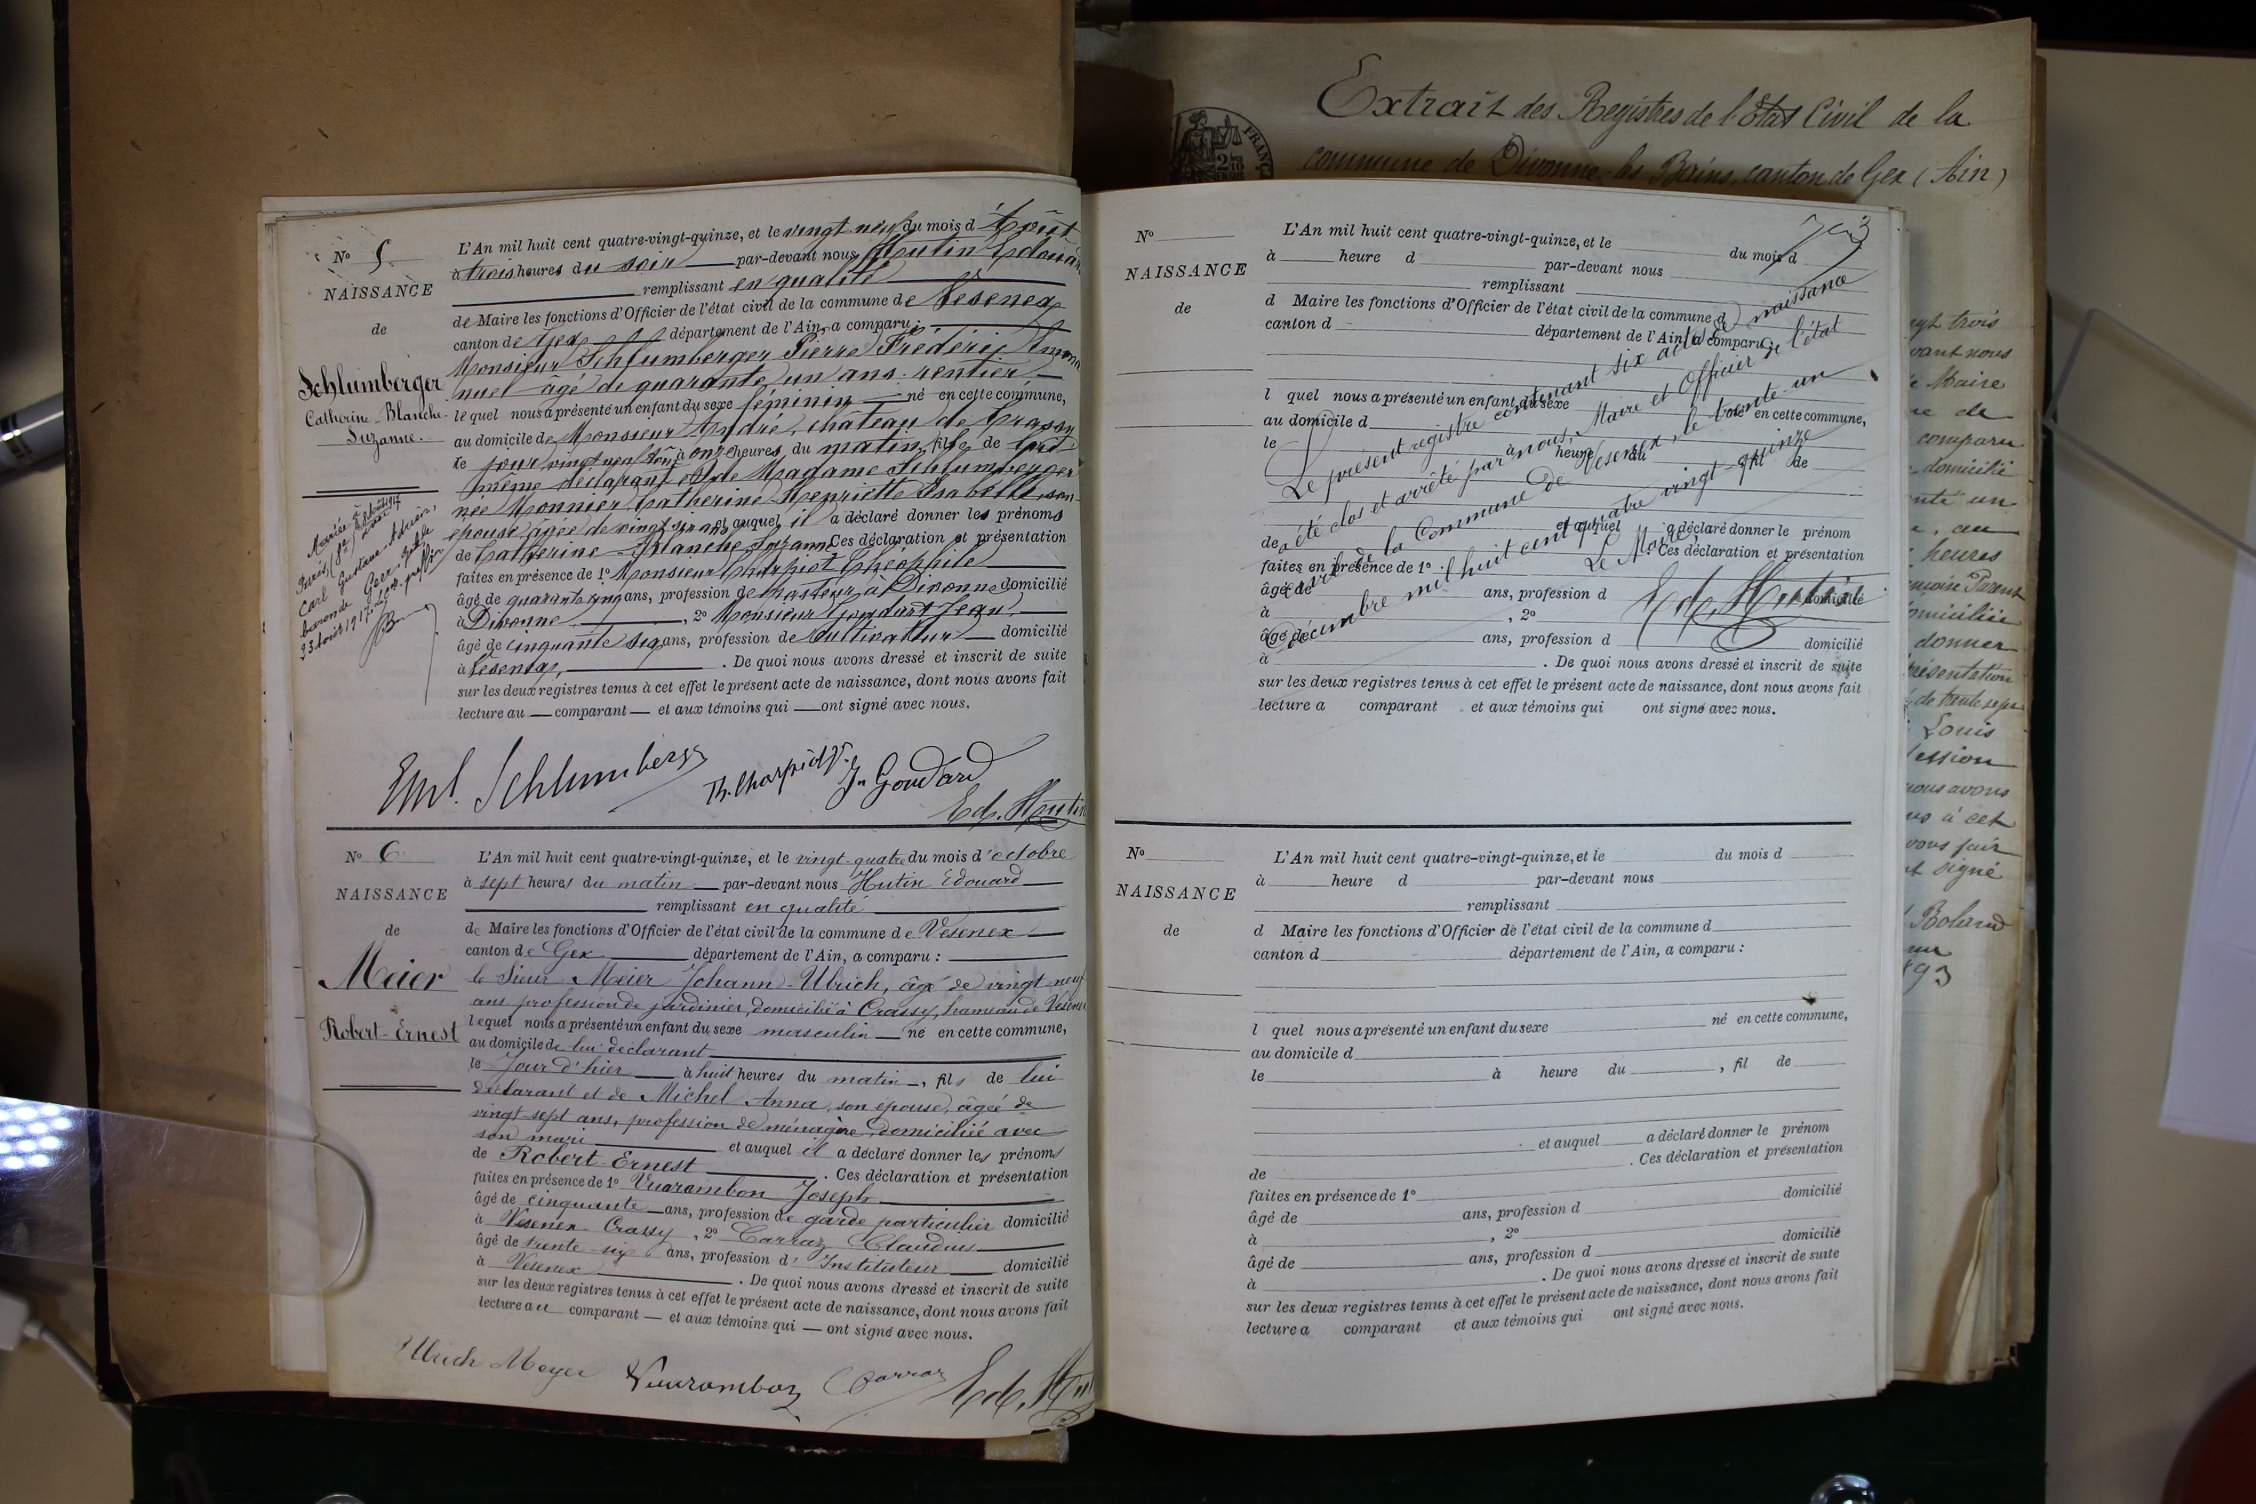 Nº 5
NAISSANCE
de
Schlumberger
Catherine-Blanche-
Suzanne.
Mariée à
Paris, (8e)
Carl Gustave
baron de Geer
23 août 1917
L'An mil huit cent quatre-vingt-quinze, et le vingt neuf du mois d'Août
à trois heures du soir par-devant nous Hutin Edouard
remplissant en qualité
de Maire les fonctions d'Officier de l'état civil de la commune de Vesenex
canton de Gex département de l'Ain, a comparu :
Monsieur Schlumberger Pierre Frédéric Emma
nuel âgé de quarante un ans rentier
le quel nous a présenté un enfant du sexe féminin né en cette commune,
au domicile de Monsieur André, château de Crassy
le jour vingt neuf août à onze heures du matin, fille de lui
même déclarant et de Madame Schlumberger
née Monnier Catherine Henriette Isabelle, son
épouse âgée de vingt ans et auquel il a déclaré donner les prénoms
de Catherine-Blanche Suzanne Ces déclaration et présentation
faites en présence de 1º Monsieur Charpiot Théophile
âgé de quarante cinq ans, profession de à Divonne domicilié
à Divonne , 2º Monsieur Goudard Jean
âgé de cinquante six ans, profession de Cultivateur domicilié
à Vesenex, . De quoi nous avons dressé et inscrit de suite
sur les deux registres tenus à cet effet le présent acte de naissance, dont nous avons fait
lecture au comparant et aux témoins qui ont signé avec nous.
Eml. Schlumberger Th. Charpiot Jn Goudard
Ed. Hutin
Nº 6
NAISSANCE
de
Meier
Robert-Ernest
L'An mil huit cent quatre-vingt-quinze, et le vingt-quatre du mois d'octobre
à sept heures du matin par-devant nous Hutin Edouard
remplissant en qualité
de Maire les fonctions d'Officier de l'état civil de la commune de Vesenex
canton de Gex département de l'Ain, a comparu :
le Sieur Meier Johann-Ulrich, âgé de vingt-neuf
ans profession de jardinier, domicilié à Crassy, hameau de Vésenex
lequel nous a présenté un enfant du sexe masculin né en cette commune,
au domicile de lui déclarant
le jour d'hier à huit heures du matin, fils de lui
déclarant et de Michel Anna, son épouse, âgée de
vingt-sept ans, profession de ménagère, domiciliée avec
son mari et auquel il a déclaré donner les prénoms
de Robert-Ernest . Ces déclaration et présentation
faites en présence de 1º Vuarambon Joseph
âgé de cinquante ans, profession de garde particulier domicilié
à Vesenex Crassy , 2º Carraz Claudius
âgé de trente-six ans, profession d'Instituteur domicilié
à Vesenex . De quoi nous avons dressé et inscrit de suite
sur les deux registres tenus à cet effet le présent acte de naissance, dont nous avons fait
lecture au comparant et aux témoins qui ont signé avec nous.
Ulrich Meyer Vuarambon C Carraz Ed. Hutin
Extrait des Registres de l'Etat Civil de la
commune de Divonne-les Bains, canton de Gex (Ain)
Nº
NAISSANCE
de
L'An mil huit cent quatre-vingt-quinze, et le du mois d
à heure d par-devant nous
remplissant
d Maire les fonctions d'Officier de l'état civil de la commune d
canton d département de l'Ain, a comparu :
l quel nous a présenté un enfant du sexe né en cette commune,
au domicile d
le à heure du fil de
et auquel a déclaré donner le prénom
de . Ces déclaration et présentation
faites en présence de 1º
âgé de ans, profession d domicilié
à , 2º
âgé de ans, profession d domicilié
à . De quoi nous avons dressé et inscrit de suite
sur les deux registres tenus à cet effet le présent acte de naissance, dont nous avons fait
lecture a comparant et aux témoins qui ont signé avec nous.
Le présent registre contenant six actes de naissance
a été clos et arrêté par nous, Maire et Officier de l'état
civil de la Commune de Vesenex, le trente-un
décembre mil huit cent quatre vingt-quinze
Le Maire,
Ed. Hutin
Nº
NAISSANCE
de
L'An mil huit cent quatre-vingt-quinze, et le du mois d
à heure d par-devant nous
remplissant
d Maire les fonctions d'Officier de l'état civil de la commune d
canton d département de l'Ain, a comparu :
l quel nous a présenté un enfant du sexe né en cette commune,
au domicile d
le à heure du , fil de
et auquel a déclaré donner le prénom
de . Ces déclaration et présentation
faites en présence de 1º
âgé de ans, profession d domicilié
à , 2º
âgé de ans, profession d domicilié
à . De quoi nous avons dressé et inscrit de suite
sur les deux registres tenus à cet effet le présent acte de naissance, dont nous avons fait
lecture a comparant et aux témoins qui ont signé avec nous.
trois
vant nous
Maire
de
comparu
domicilié
un
au
heures
domiciliée
donner
présentation
de trente sept
Louis
ession
nous avons
à cet
avons fait
signé
Boland
93